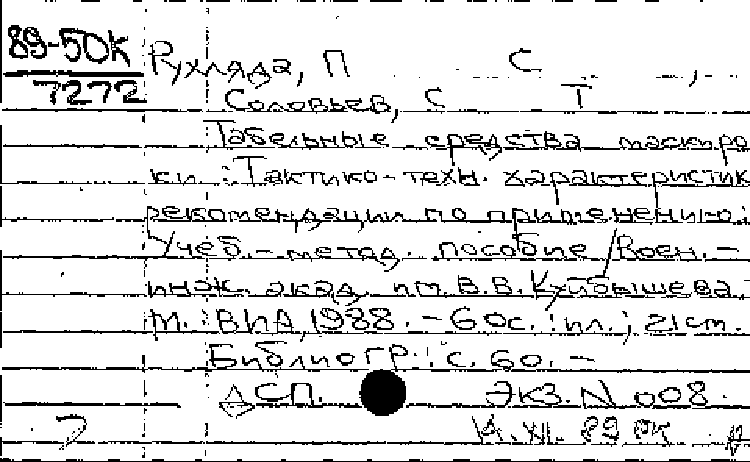 89-50К
7272
Рухляда, П С ,
Соловьев, С Т
Табельные средства маскиро
ки : Тактико-техн. характеристик
рекомендации по применению :
Учеб.-метод. пособие / Воен.-
инж. акад. им. В.В. Куйбышева. -
М. : ВИА, 1988. - 60с. : ил. ; 21см. -
Библиогр.: с. 60. -
ДСП. Экз. N 008.
XI. 89 ОК